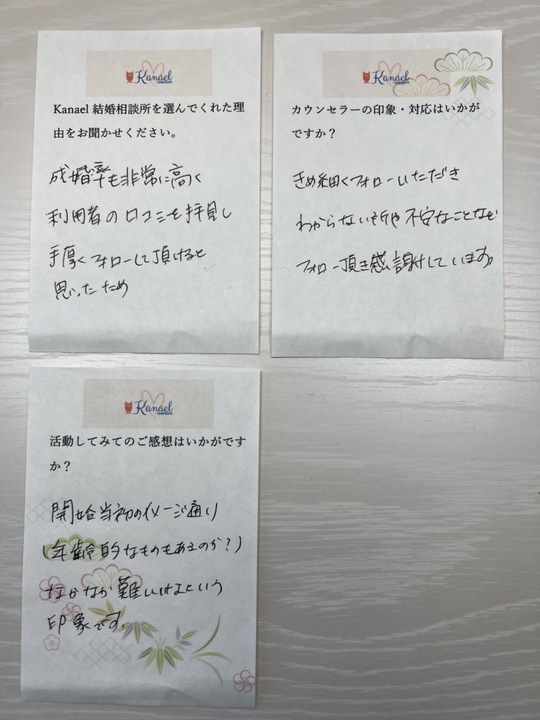 Kanael
Kanael 結婚相談所を選んでくれた理
由をお聞かせください。
成婚率も非常に高く
利用者の口コミを拝見し
手厚くフォローして頂けると
思ったため
Kanael
カウンセラーの印象・対応はいかが
ですか？
きめ細くフォローいただき
わからない所や不安なことなど
フォロー頂き感謝しています。
Kanael
活動してみてのご感想はいかがです
か？
開始当初のイメージ通り
(年齢的なものもあるのか？)
なかなか難しいなという
印象です。